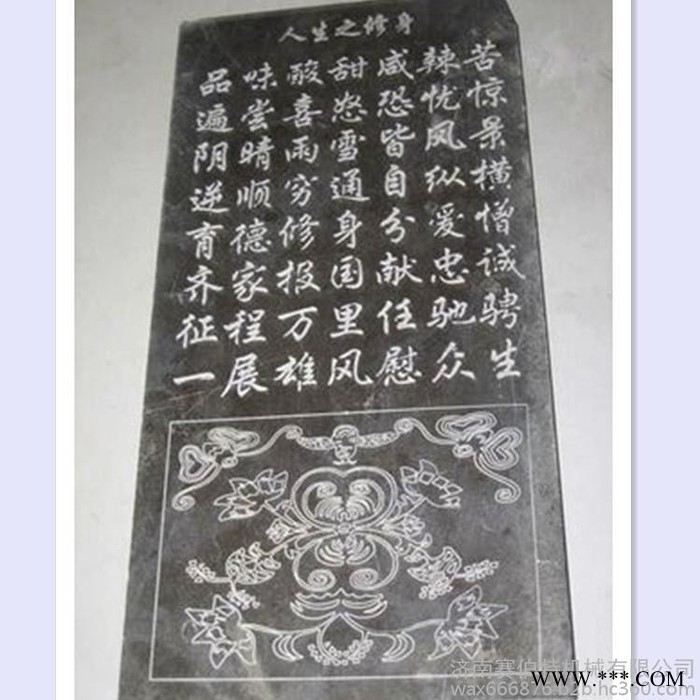 人生之修身
品味酸甜咸辣苦
遍尝喜怒恐忧惊
阴晴雨雪皆风景
逆顺穷通自纵横
育德修身分爱憎
齐家报国献忠诚
征程万里任驰骋
一展雄风慰众生
济南赛伯特机械有限公司
www.***.com